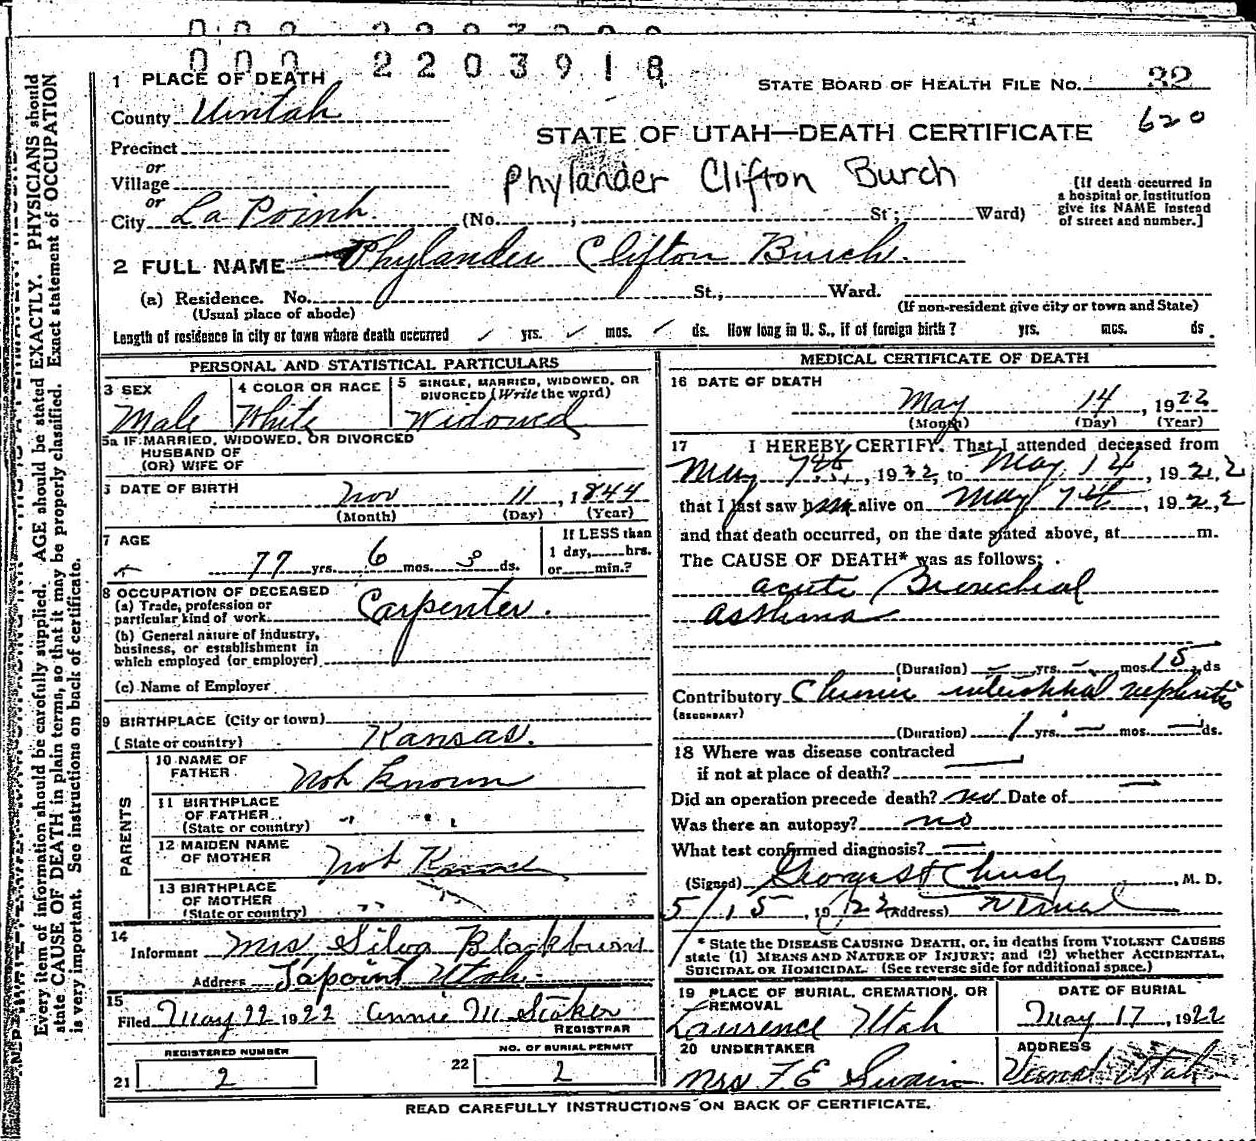 000 2203918
1 PLACE OF DEATH
STATE BOARD OF HEALTH FILE No. 32
County Uintah
620
STATE OF UTAH—DEATH CERTIFICATE
Precinct
or
Village
Phylander Clifton Burch
[If death occurred in a hospital or institution give its NAME instead of street and number.]
or
City La Point. (No. ; St; Ward)
2 FULL NAME Phylander Clifton Burch.
(a) Residence. No. St., Ward.
(Usual place of abode) (If non-resident give city or town and State)
Length of residence in city or town where death occurred yrs. mos. ds. How long in U. S., if of foreign birth? yrs. mos. ds.
PERSONAL AND STATISTICAL PARTICULARS
3 SEX
Male
4 COLOR OR RACE
White
5 SINGLE, MARRIED, WIDOWED, OR DIVORCED (Write the word)
Widowed
5a IF MARRIED, WIDOWED, OR DIVORCED
HUSBAND OF
(OR) WIFE OF
6 DATE OF BIRTH Nov 11, 1844
(Month) (Day) (Year)
7 AGE
77 yrs. 6 mos. 3 ds.
If LESS than
1 day, hrs.
or min.?
8 OCCUPATION OF DECEASED
(a) Trade, profession or
particular kind of work Carpenter.
(b) General nature of industry,
business, or establishment in
which employed (or employer)
(c) Name of Employer
9 BIRTHPLACE (City or town)
(State or country) Kansas.
PARENTS
10 NAME OF
FATHER Not Known
11 BIRTHPLACE
OF FATHER
(State or country)
12 MAIDEN NAME
OF MOTHER Not Known
13 BIRTHPLACE
OF MOTHER
(State or country)
14
Informant Mrs Silva Blackburn
Address Lapoint Utah.
15
Filed May 22 1922 Annie M Stoker
REGISTRAR
REGISTERED NUMBER
21 2
NO. OF BURIAL PERMIT
22 2
MEDICAL CERTIFICATE OF DEATH
16 DATE OF DEATH
May 14, 1922
(Month) (Day) (Year)
17 I HEREBY CERTIFY, That I attended deceased from
May 7th, 1922, to May 14, 1922
that I last saw him alive on May 7th, 1922
and that death occurred, on the date stated above, at m.
The CAUSE OF DEATH* was as follows:
acute Bronchial
asthma
(Duration) yrs. mos. 15 ds
Contributory Chronic interstitial nephritis
(SECONDARY)
(Duration) 1 yrs. mos. ds.
18 Where was disease contracted
if not at place of death?
Did an operation precede death? no Date of
Was there an autopsy? no
What test confirmed diagnosis?
(Signed) , M. D.
5/15, 1922 (Address) Vernal
* State the DISEASE CAUSING DEATH, or, in deaths from VIOLENT CAUSES
state (1) MEANS AND NATURE OF INJURY; and (2) whether ACCIDENTAL,
SUICIDAL OR HOMICIDAL. (See reverse side for additional space.)
19 PLACE OF BURIAL, CREMATION, OR REMOVAL
Lawrence Utah
DATE OF BURIAL
May 17, 1922
20 UNDERTAKER
Mrs F E Swain
ADDRESS
Vernal Utah
READ CAREFULLY INSTRUCTIONS ON BACK OF CERTIFICATE.
Every item of information should be carefully supplied. AGE should be stated EXACTLY. PHYSICIANS should
state CAUSE OF DEATH in plain terms, so that it may be properly classified. Exact statement of OCCUPATION
is very important. See instructions on back of certificate.